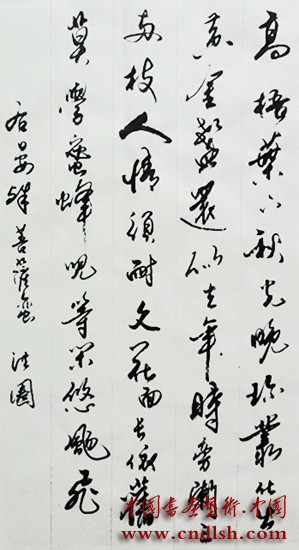 高梧葉下秋光晚珍叢化出
黄金盞還似去年時旁闌三
兩枝人情須耐久花面長依舊
莫學蜜蜂兒等閑悠颺飛
右晏殊菩薩蠻
www.cndlsh.com